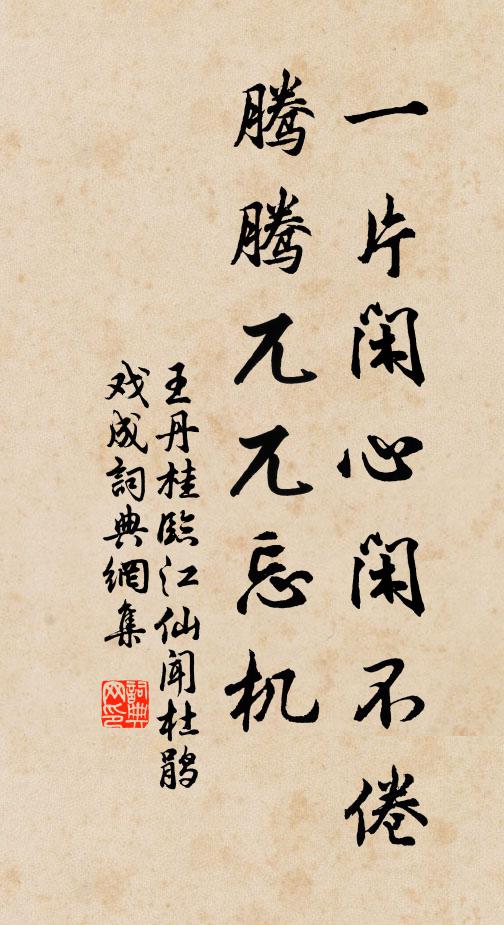 一片闲心闲不倦
腾腾兀兀忘机
王丹桂臨江仙闻杜鹃
戏成詞典網集
詞典
网印